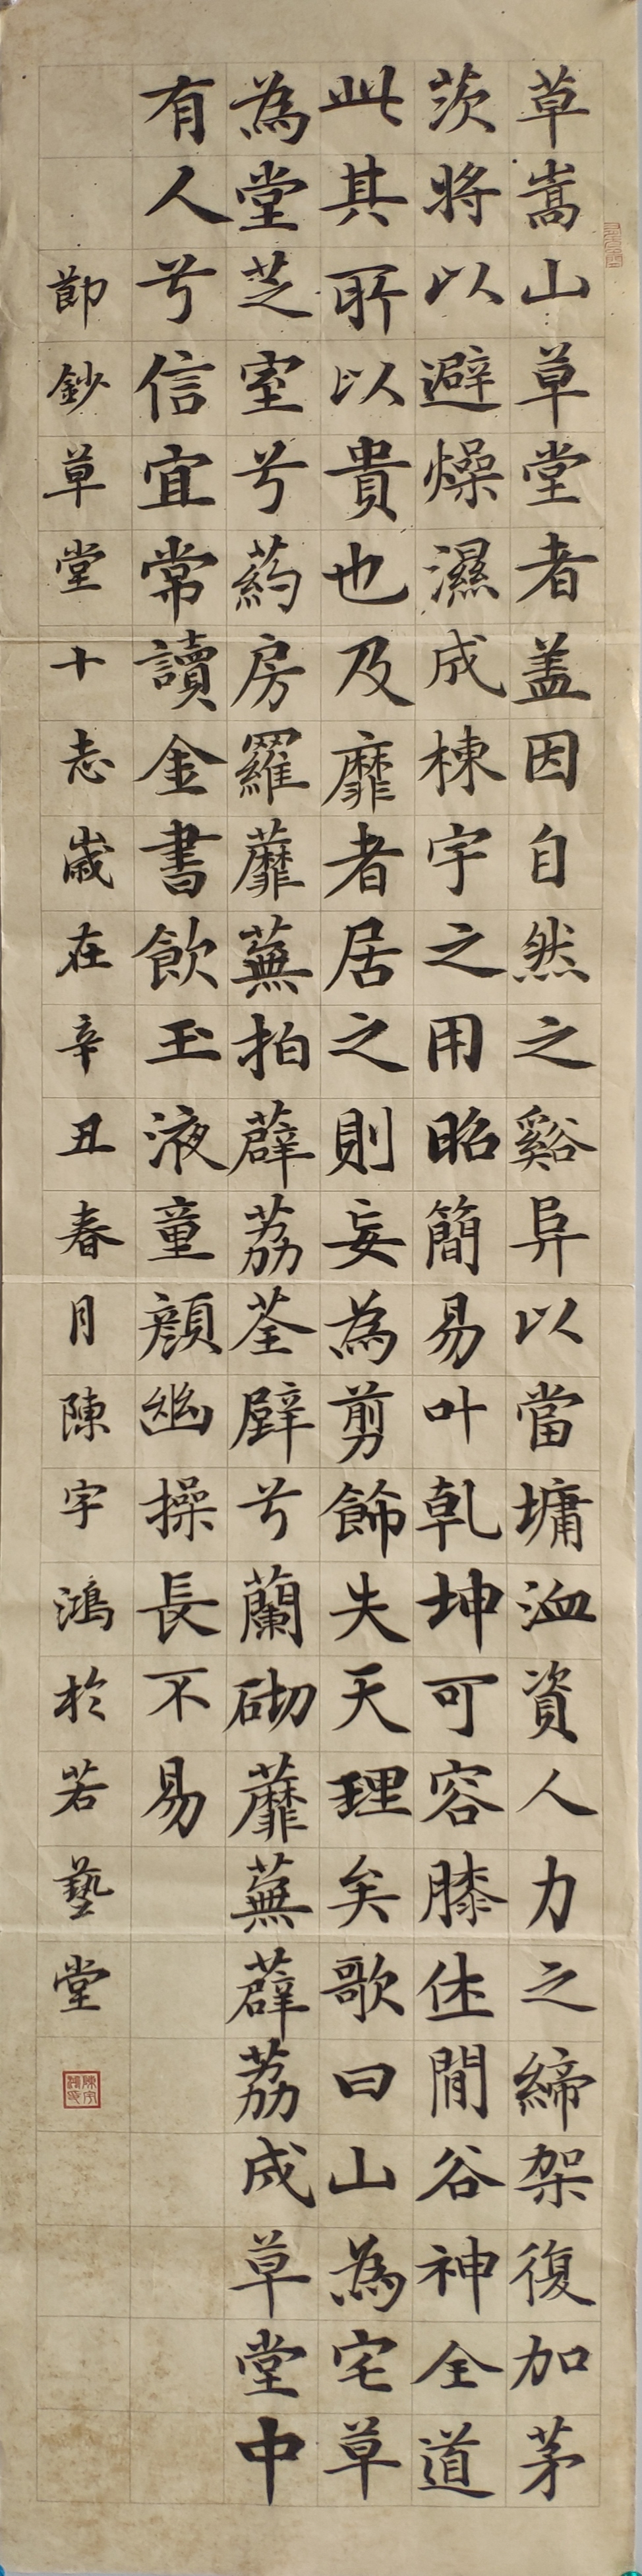 草嵩山草堂者盖因自然之谿阜以當墉洫資人力之締架復加茅
茨將以避燥濕成棟宇之用昭簡易叶乾坤可容膝休閒谷神全道
此其所以貴也及靡者居之則妄為剪飾失天理矣歌曰山為宅草
為堂芝室兮葯房羅蘼蕪拍薜荔荃壁兮蘭砌蘼蕪薜荔成草堂中
有人兮信宜常讀金書飲玉液童顔幽操長不易
節鈔草堂十志歲在辛丑春月陳宇鴻於若藝堂